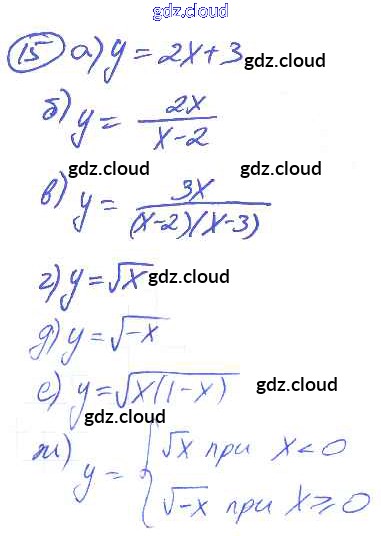 gdz.cloud
15 а) y = 2x + 3 gdz.cloud
б) y = 2x / (x - 2)
gdz.cloud gdz.cloud
в) y = 3x / ((x-2)(x-3)) gdz.cloud
г) y = √x gdz.cloud
д) y = √-x
е) y = √x(1-x) gdz.cloud
gdz.cloud
ж) y = { √x при x < 0
√-x при x ⩾ 0